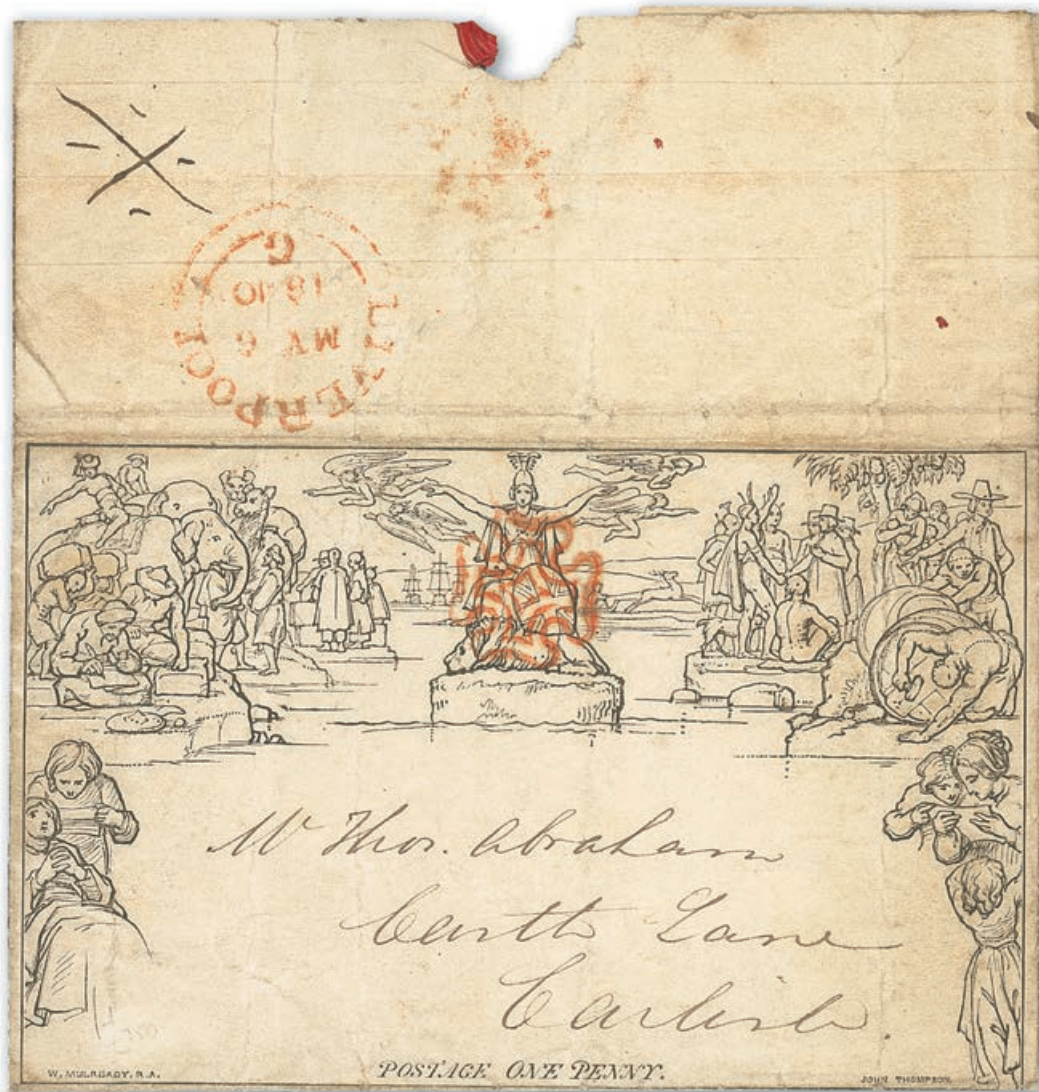 LIVERPOOL
MY 6
1840
G
Mr Thos. Abraham
Castle Lane
Carlisle.
W. MULREADY, R.A.
POSTAGE ONE PENNY.
JOHN THOMPSON